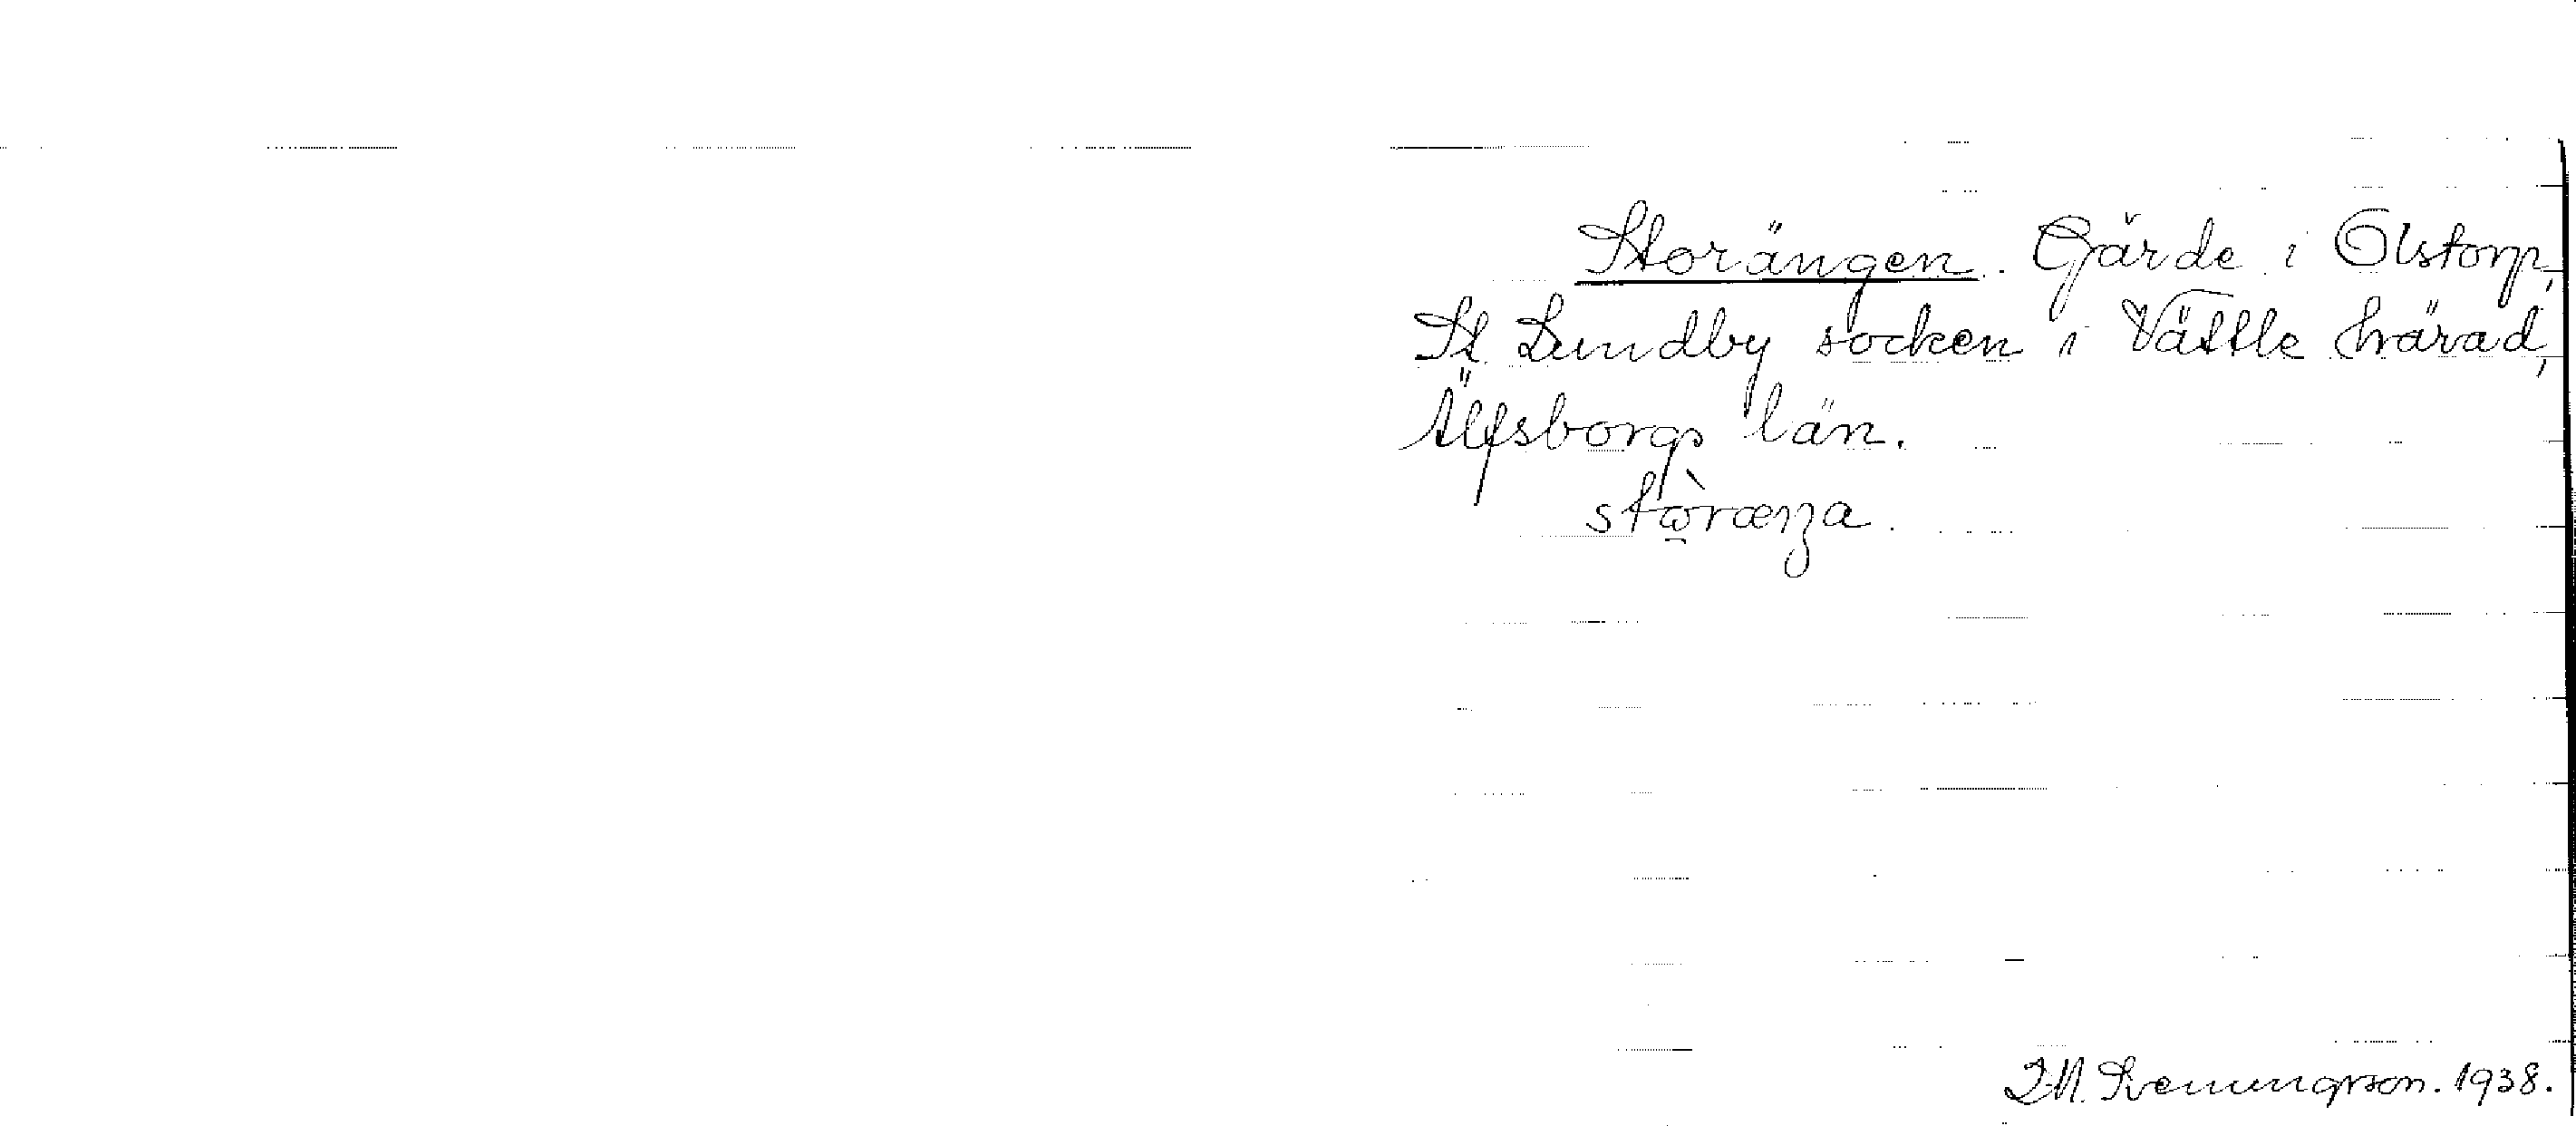 Storängen. Gärde i Olstorp,
St. Lundby socken i Vättle härad,
Älfsborgs län.
stòræŋa.
J.M. Svenungsson. 1938.